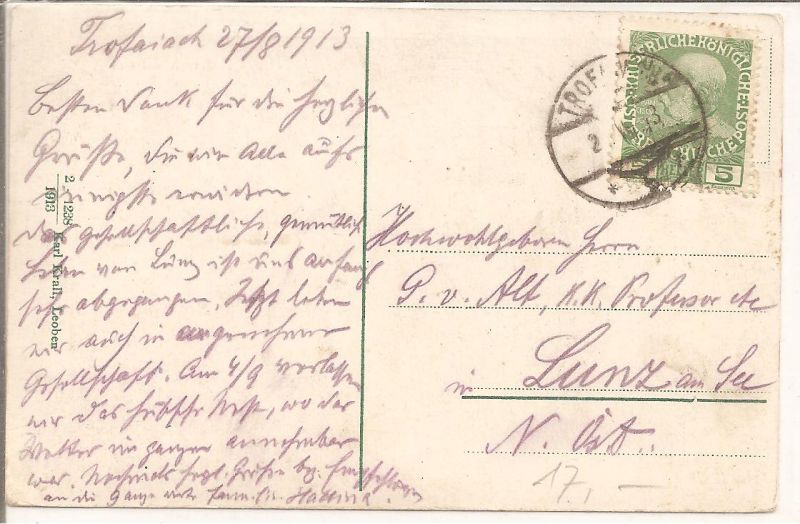 Trofaiach 27/8 1913
Besten Dank für die herzlichen
Grüße, die wir Alle aufs
innigste erwidern
Das gesellschaftliche, gemütliche
von Lunz ist uns anfangs
sehr abgegangen. Jetzt leben
wir auch in angenehmer
Gesellschaft. Am 4/9 verlassen
wir das hübsche Nest, wo das
Wetter im ganzen annehmbar
war. Nochmals herzl. Grüße
an die Ganze
2 - 1238 Karl Krall, Leoben
1913
TROFAIACH
KAISERLICHE KÖNIGLICHE ÖSTERREICHISCHE POST
5
Hochwohlgeboren Herrn
P. v. Alt, K.K. Professor etc
in Lunz am See
N. Öst.
17,-